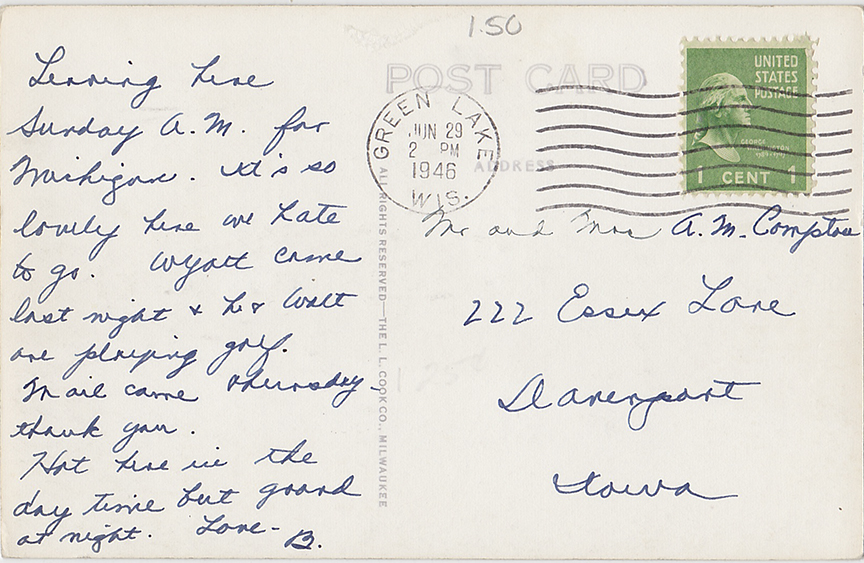 1.50
Leaving here
Sunday A.M. for
Michigan. It's so
lovely here we hate
to go. Wyatt came
last night & he & Walt
are playing golf.
Mail came Thursday -
thank you.
Hot here in the
day time but grand
at night. Love - B.
POST CARD
ADDRESS
GREEN LAKE
JUN 29
2 PM
1946
WIS.
UNITED
STATES
POSTAGE
GEORGE WASHINGTON
1 CENT 1
ALL RIGHTS RESERVED—THE L. L. COOK CO., MILWAUKEE
Mr and Mrs A. M. Compton
222 Essex Lane
Davenport
Iowa